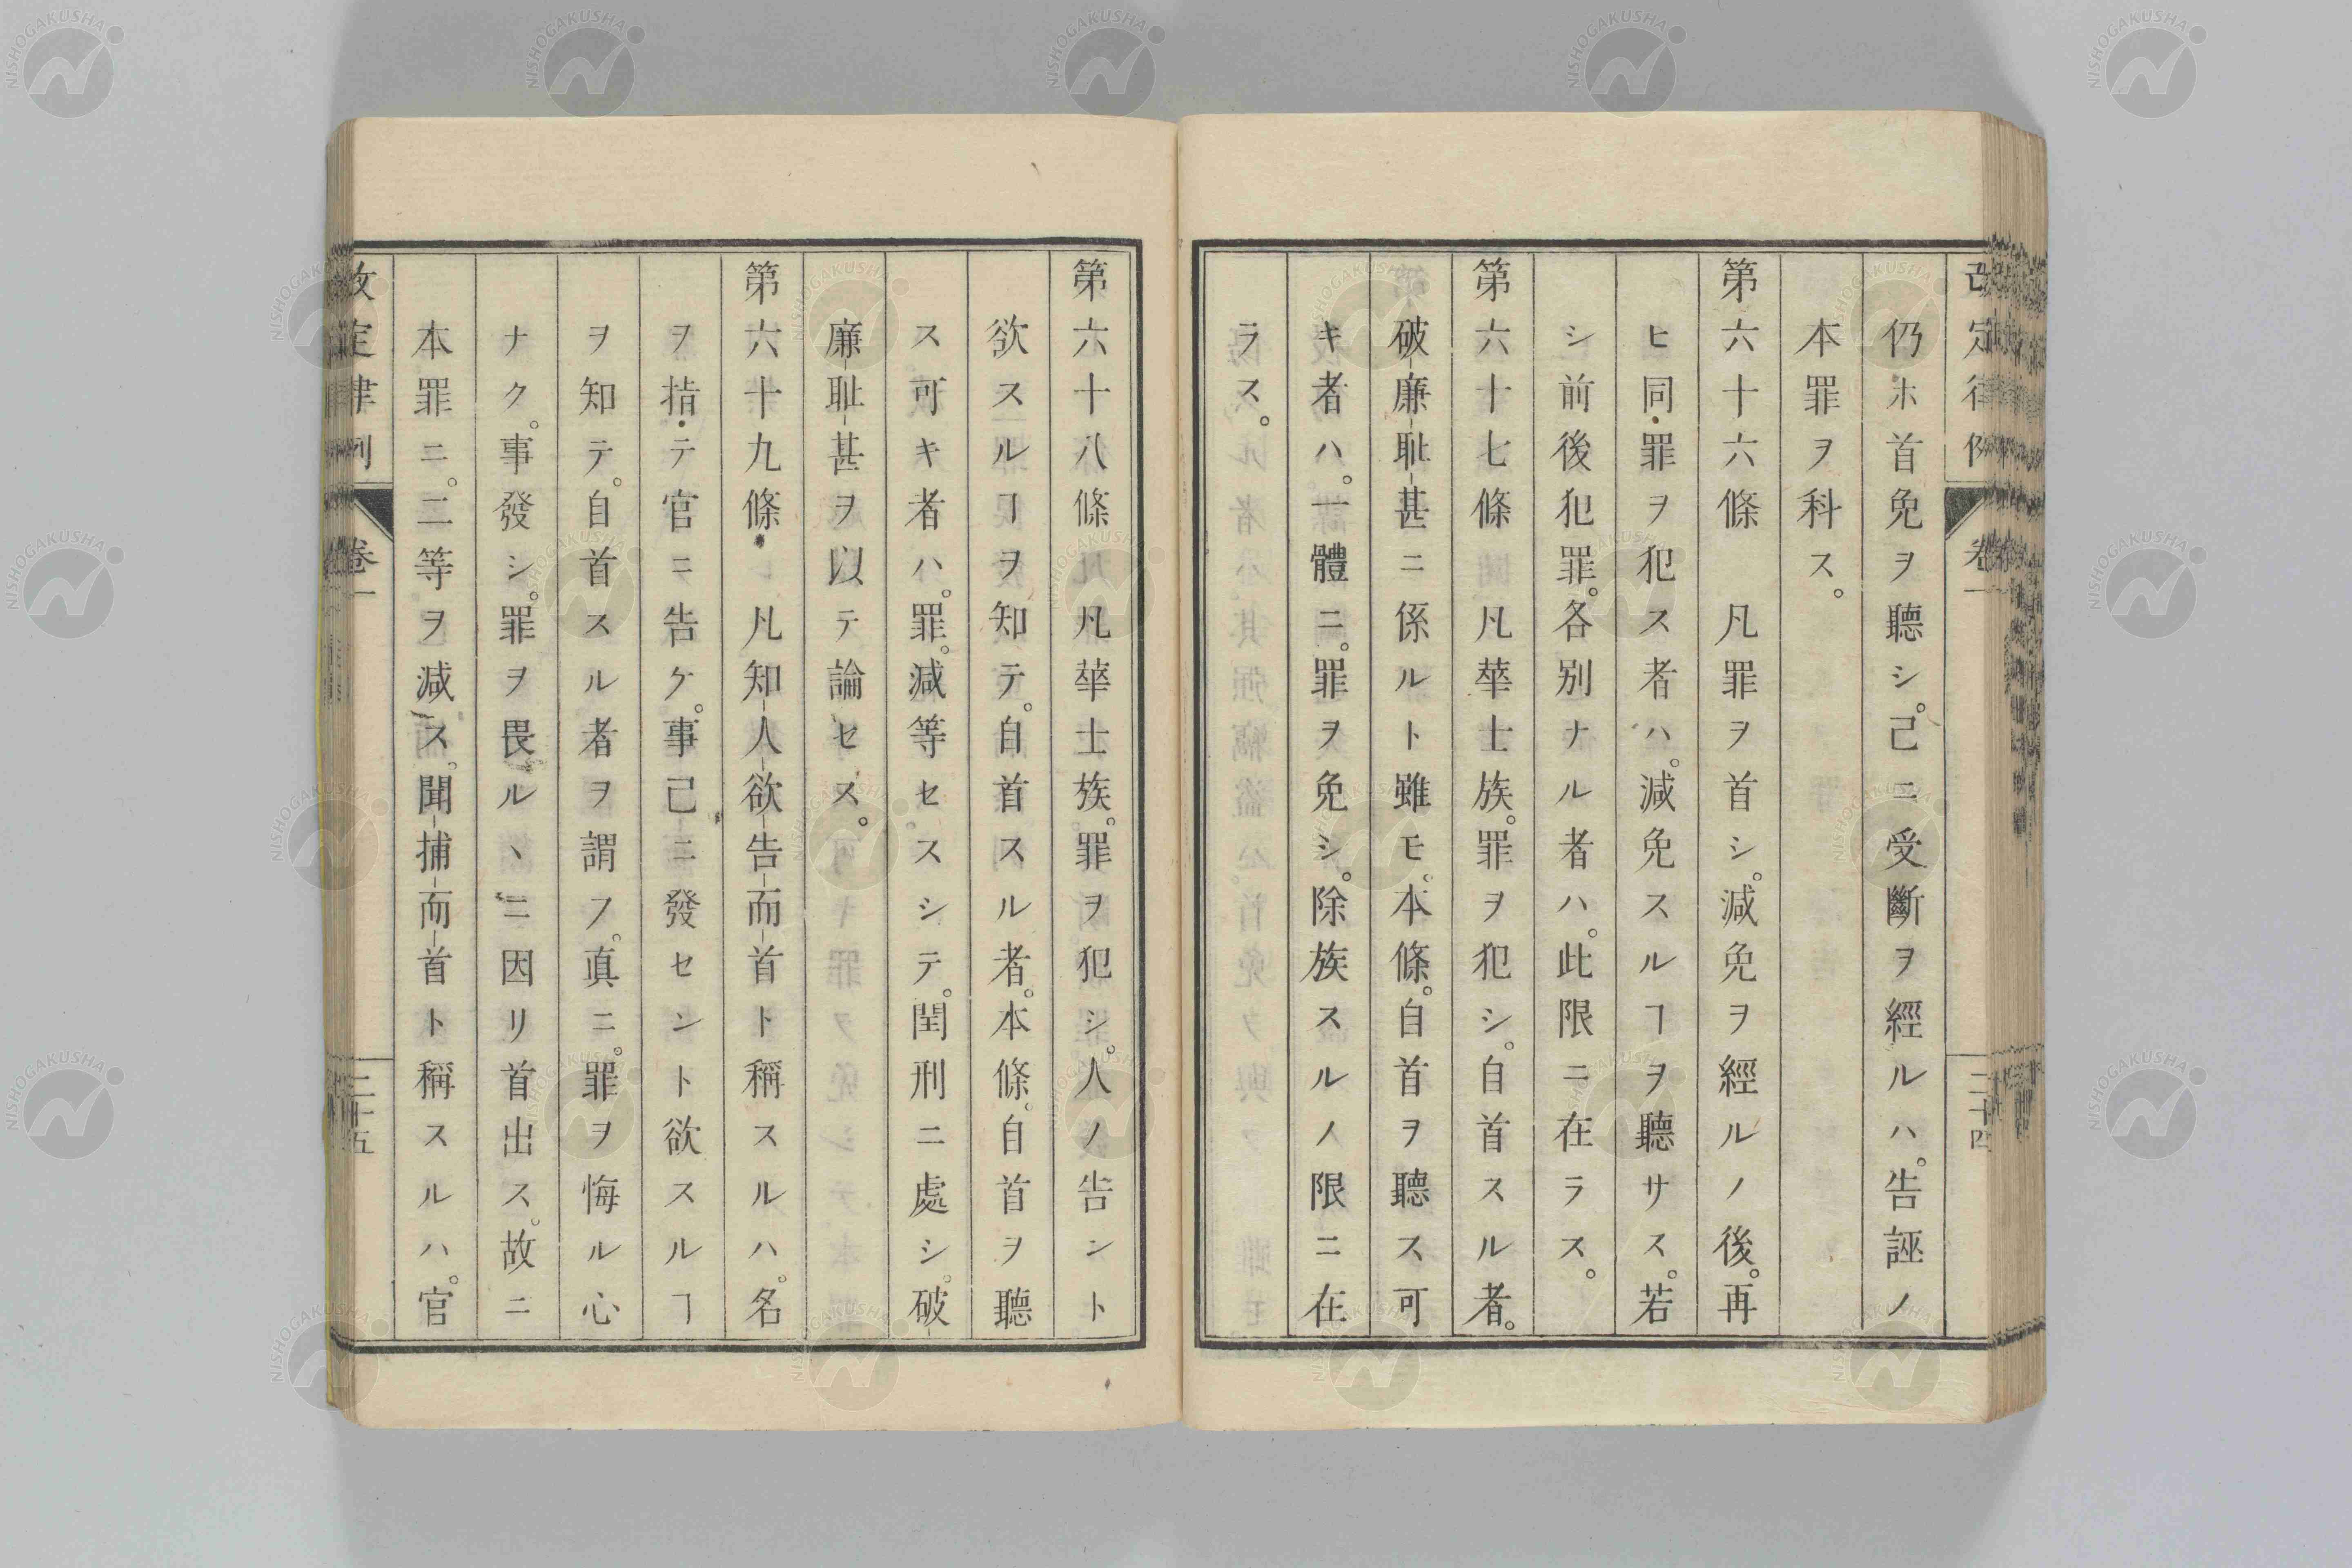 仍ホ首免ヲ聽シ。己ニ受斷ヲ經ルハ。告誣ノ
本罪ヲ科ス。
第六十六條　凡罪ヲ首シ。減免ヲ經ルノ後。再
ヒ同罪ヲ犯ス者ハ。減免スルヿヲ聽サス。若
シ前後犯罪。各別ナル者ハ。此限ニ在ラス。
第六十七條　凡華士族。罪ヲ犯シ。自首スル者。
破廉耻甚ニ係ルト雖モ。本條。自首ヲ聽ス可
キ者ハ。一體ニ。罪ヲ免シ。除族スルノ限ニ在
ラス。
第六十八條　凡華士族。罪ヲ犯シ。人ノ告ント
欲スルヿヲ知テ。自首スル者。本條。自首ヲ聽
ス可キ者ハ。罪。減等セスシテ。閏刑ニ處シ。破
廉耻甚ヲ以テ論セス。
第六十九條　凡知人欲告而首ト稱スルハ。名
ヲ指テ官ニ告ケ。事己ニ發セント欲スルヿ
ヲ知テ。自首スル者ヲ謂フ。真ニ。罪ヲ悔ル心
ナク。事發シ。罪ヲ畏ルヽニ因リ首出ス。故ニ
本罪ニ。二等ヲ減ス。聞捕而首ト稱スルハ。官
改定律例
卷一
二十五
NISHOGAKUSHA